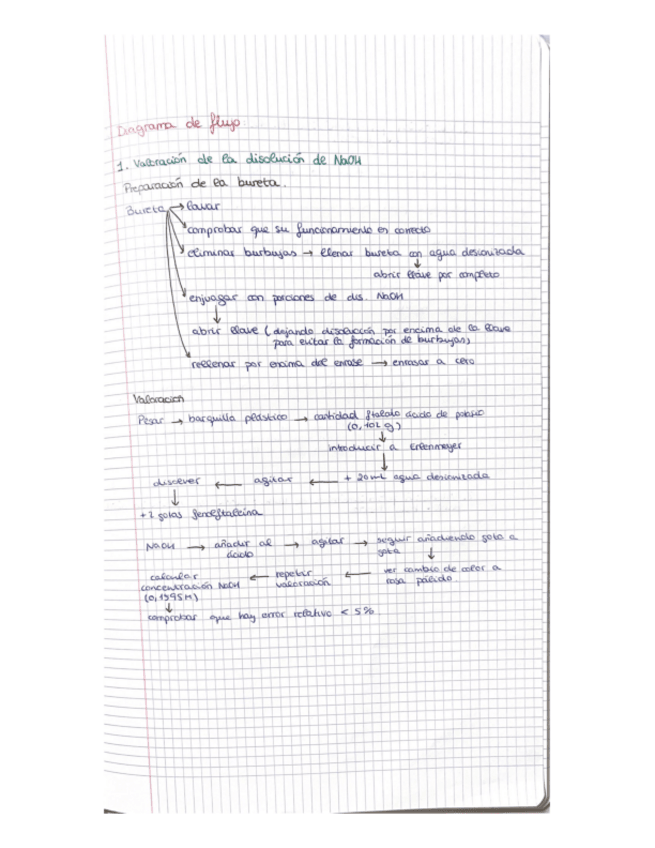 Diagrama de flujo
1. Valoración de la disolución de NaOH
Preparación de la bureta.
Bureta → lavar
comprobar que su funcionamiento es correcto
eliminar burbujas → llenar bureta con agua desionizada
↓
abrir llave por completo
enjuagar con porciones de dis. NaOH
↓
abrir llave (dejando disolución por encima de la llave
para evitar la formación de burbujas)
rellenar por encima del enrase → enrasar a cero
Valoración
Pesar → barquilla plástico → cantidad ftalato ácido de potasio
(0,102 g)
↓
introducir a Erlenmeyer
↓
disolver ← agitar ← + 20 mL agua desionizada
↓
+ 2 gotas fenolftaleína
NaOH → añadir al → agitar → seguir añadiendo gota a
ácido gota ↓
calcular ← repetir ← ver cambio de color a
concentración NaOH valoración rosa pálido
(0,1595M)
↓
comprobar que hay error relativo < 5%